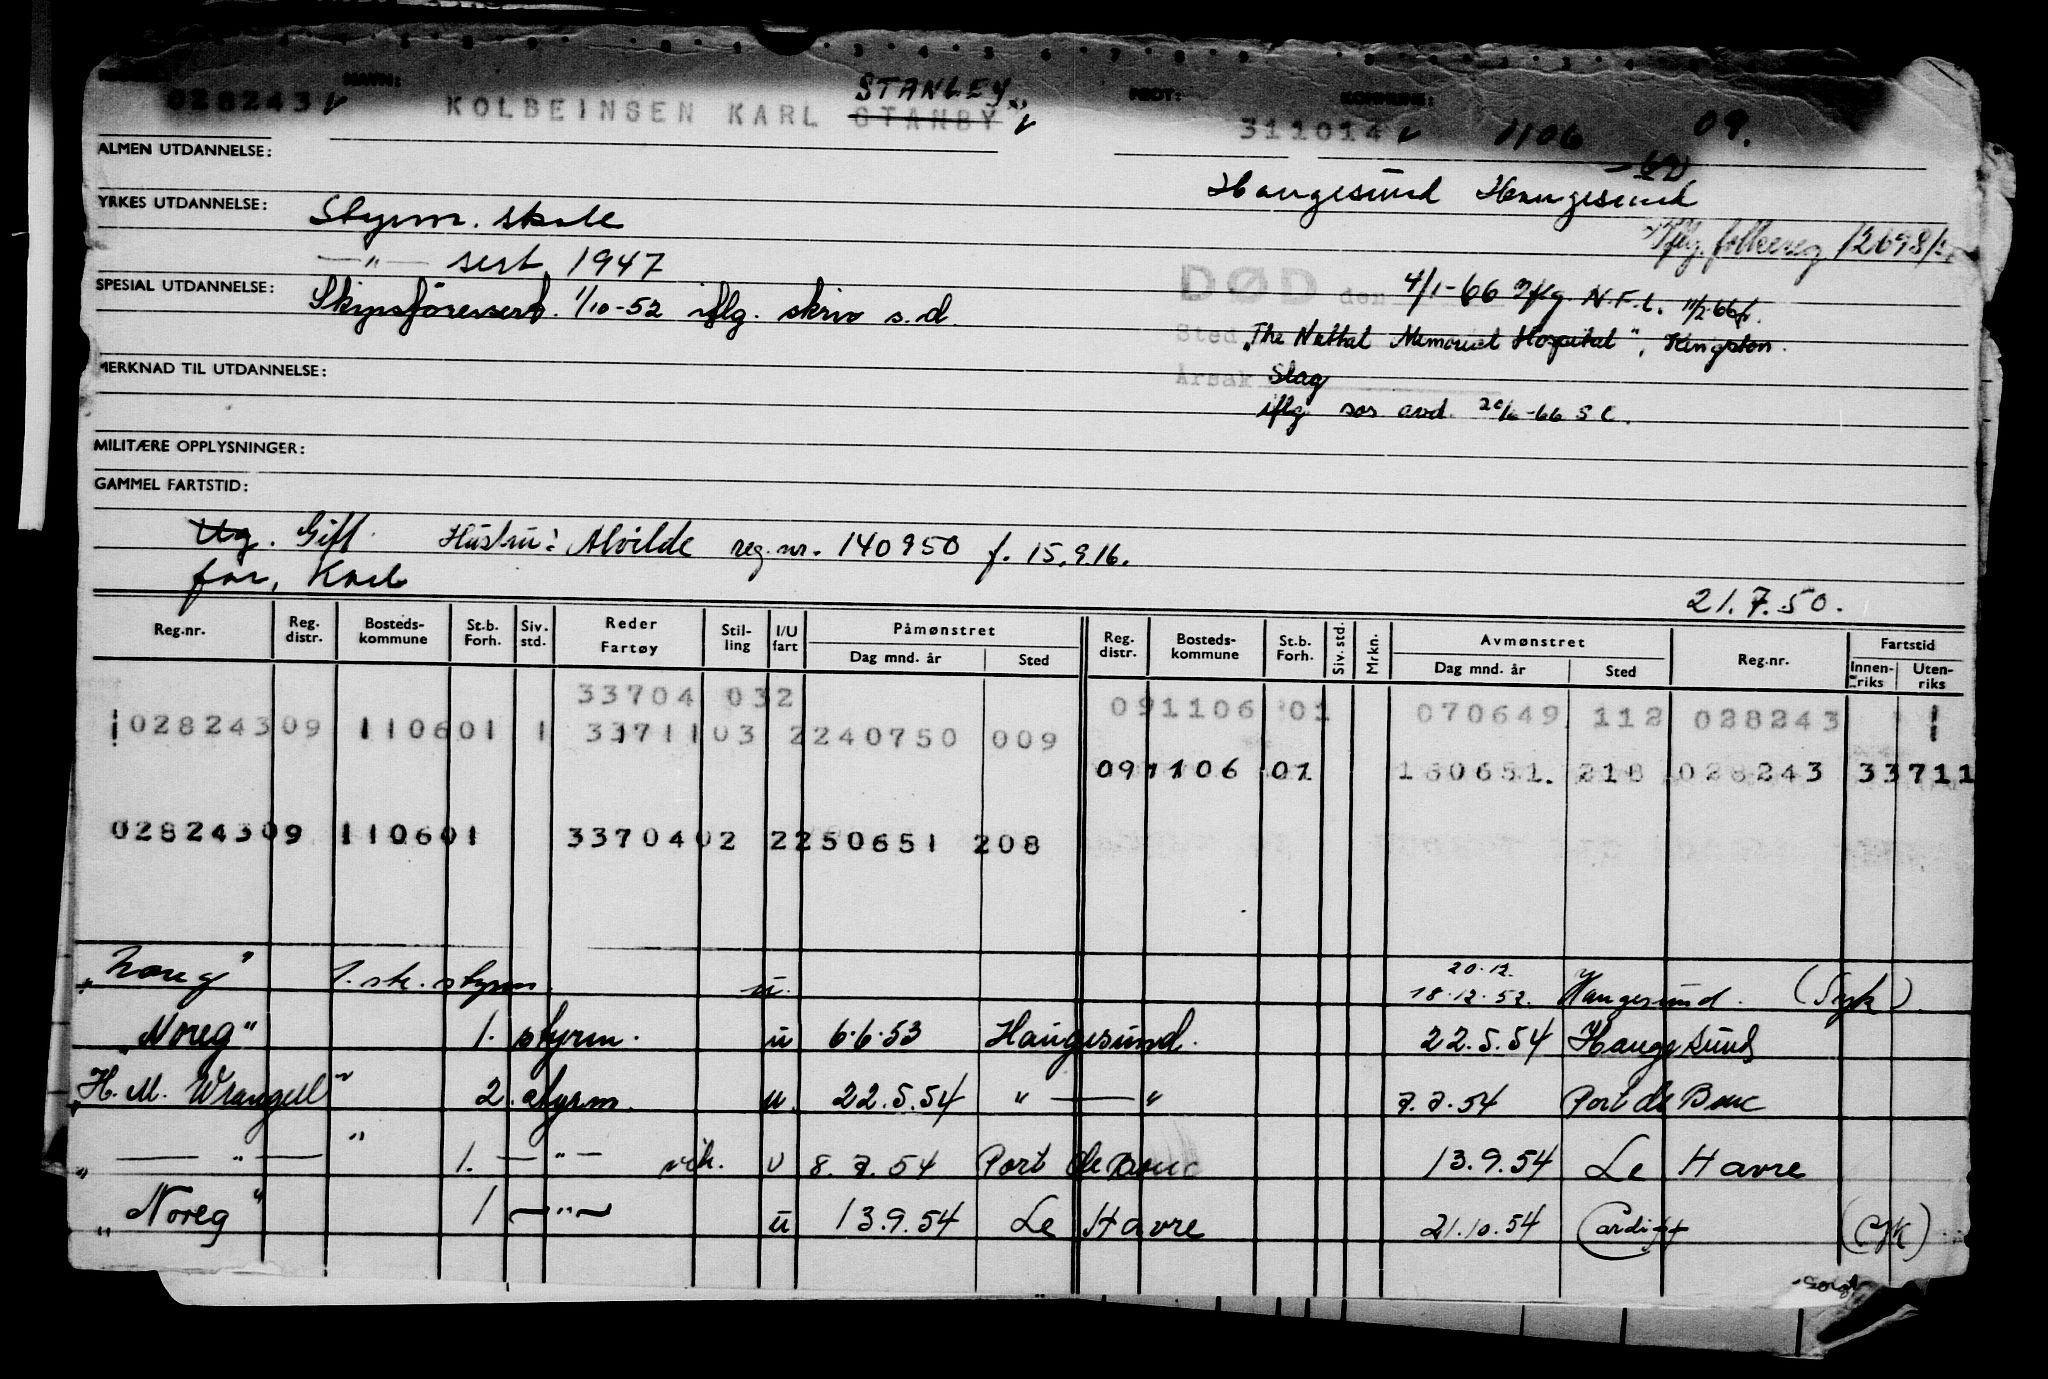 NAVN: FØDT: KOMMUNE:
028243 ✓ KOLBEINSEN KARL STANBY STANLEY ✓ 311014 ✓ 1106 09.
ALMEN UTDANNELSE:
Haugesund Haugesund
YRKES UTDANNELSE: Styrm. skole
folkereg. 12698
—"— sert 1947
SPESIAL UTDANNELSE: Skipsförersert. 1/10-52 iflg. skriv s.d.
DØD den 4/1-66 iflg. N.F.L. 11/2-66
Sted „The Nuttal Memorial Hospital", Kingston.
MERKNAD TIL UTDANNELSE:
Årsak Slag
iflg. sos avd. -66 S C.
MILITÆRE OPPLYSNINGER:
GAMMEL FARTSTID:
Ug. Gift. Hustru: Alvilde reg. nr. 140950 f. 15.9.16.
far, Karl
21.7.50.
Reg.nr. Reg. distr. Bosteds-kommune St.b. Forh. Siv. std. Reder Fartøy Stil-ling I/U fart Påmønstret Dag mnd. år Sted Reg. distr. Bosteds-kommune St.b. Forh. Siv. std. Mrkn. Avmønstret Dag mnd. år Sted Reg.nr. Fartstid Innen-riks Uten-riks
33704 032 091106 01 070649 112 028243
02824309 110601 1 3371103 2240750 009
091106 01 160651. 218 028243 33711
02824309 110601 3370402 2250651 208
1. st. styrm. u. 20.12. 18.12.52. Haugesund. (Syk)
„Noreg" 1. styrm. u 6.6.53 Haugesund. 22.5.54 Haugesund
„H. M. Wrangell" 2. styrm. u. 22.5.54 "—" 7.7.54 Port de Bouc
„ —"— " 1. —"— vik. u 8.7.54 Port de Bouc 13.9.54 Le Havre
„Noreg" 1 —"— u 13.9.54 Le Havre 21.10.54 Cardiff (syk)